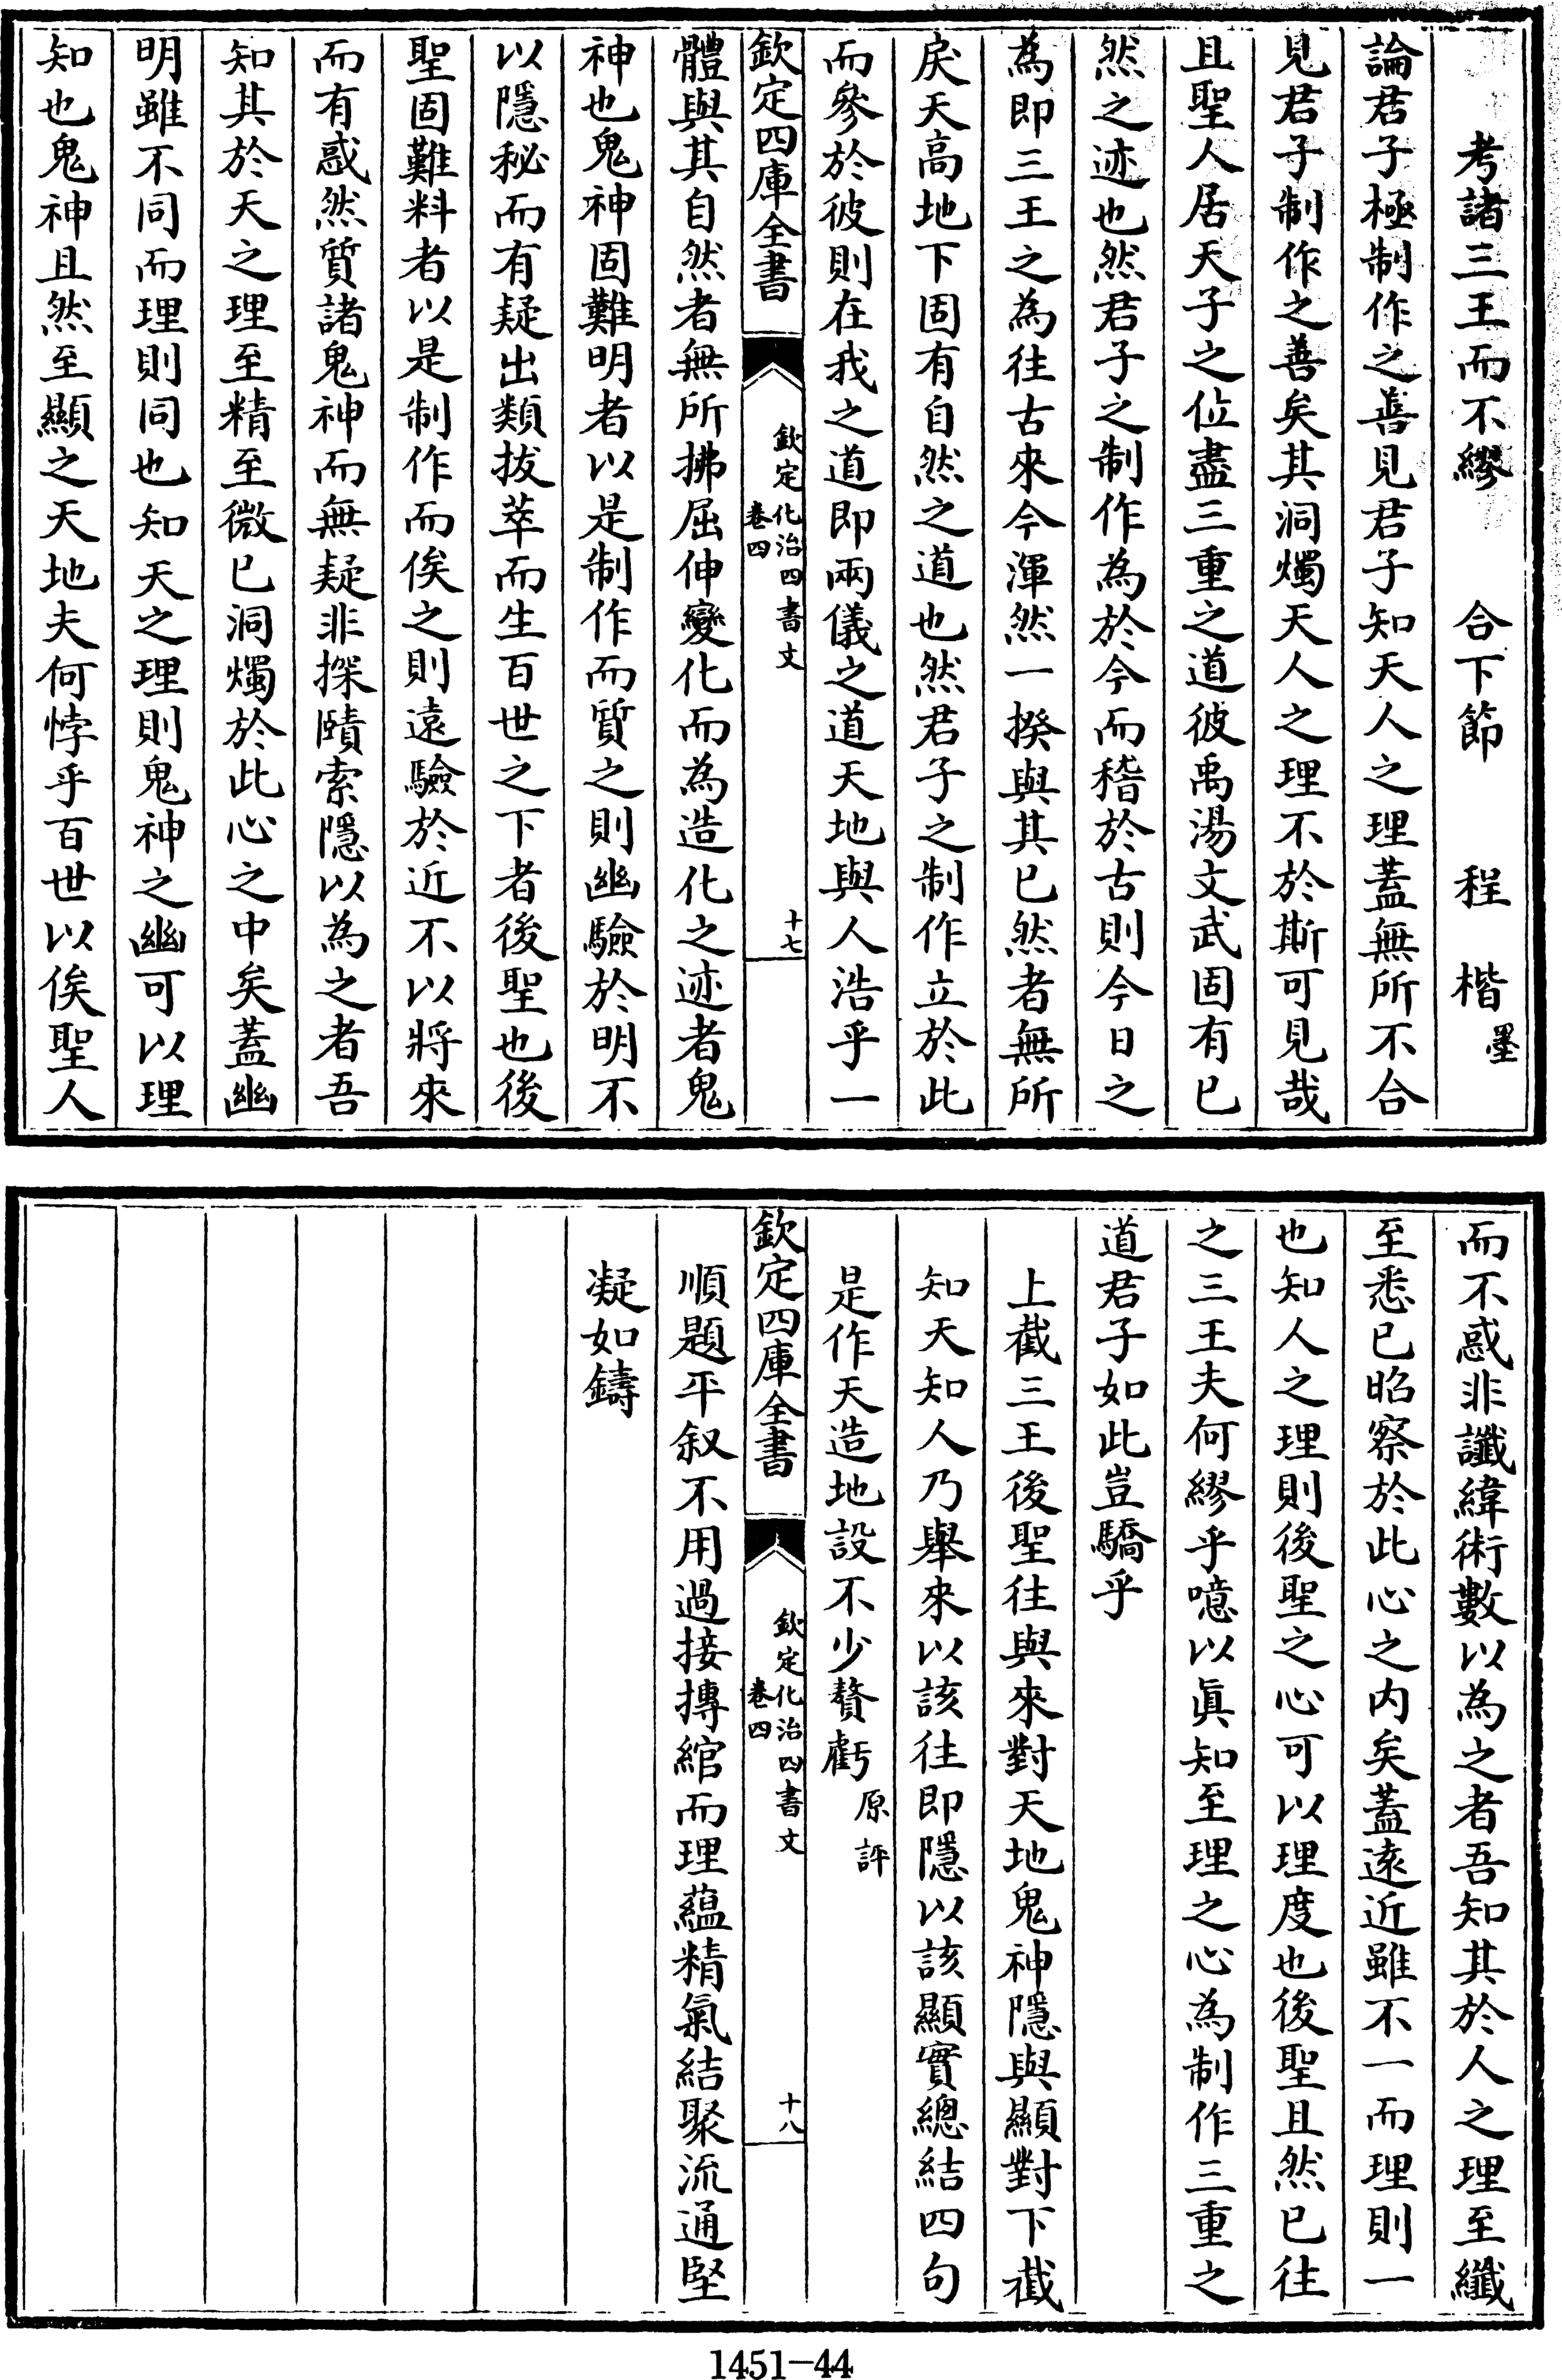 考諸三王而不繆 合下節 程楷墨
論君子極制作之善見君子知天人之理蓋無所不合
見君子制作之善矣其洞燭天人之理不於斯可見哉
且聖人居天子之位盡三重之道彼禹湯文武固有已
然之迹也然君子之制作為於今而稽於古則今日之
為即三王之為往古來今渾然一揆與其已然者無所
戾天高地下固有自然之道也然君子之制作立於此
而參於彼則在我之道即兩儀之道天地與人浩乎一
欽定四庫全書 欽定化治四書文 卷四 十七
體與其自然者無所拂屈伸變化而為造化之迹者鬼
神也鬼神固難明者以是制作而質之則幽驗於明不
以隱秘而有疑出類拔萃而生百世之下者後聖也後
聖固難料者以是制作而俟之則遠驗於近不以將來
而有惑然質諸鬼神而無疑非探賾索隱以為之者吾
知其於天之理至精至微已洞燭於此心之中矣蓋幽
明雖不同而理則同也知天之理則鬼神之幽可以理
知也鬼神且然至顯之天地夫何悖乎百世以俟聖人
而不惑非讖緯術數以為之者吾知其於人之理至纖
至悉已昭察於此心之內矣蓋遠近雖不一而理則一
也知人之理則後聖之心可以理度也後聖且然已往
之三王夫何繆乎噫以真知至理之心為制作三重之
道君子如此豈驕乎
上截三王後聖往與來對天地鬼神隱與顯對下截
知天知人乃舉來以該往即隱以該顯實總結四句
是作天造地設不少贅虧 原評
欽定四庫全書 欽定化治四書文 卷四 十八
順題平叙不用過接摶綰而理蘊精氣結聚流通堅
凝如鑄
1451-44